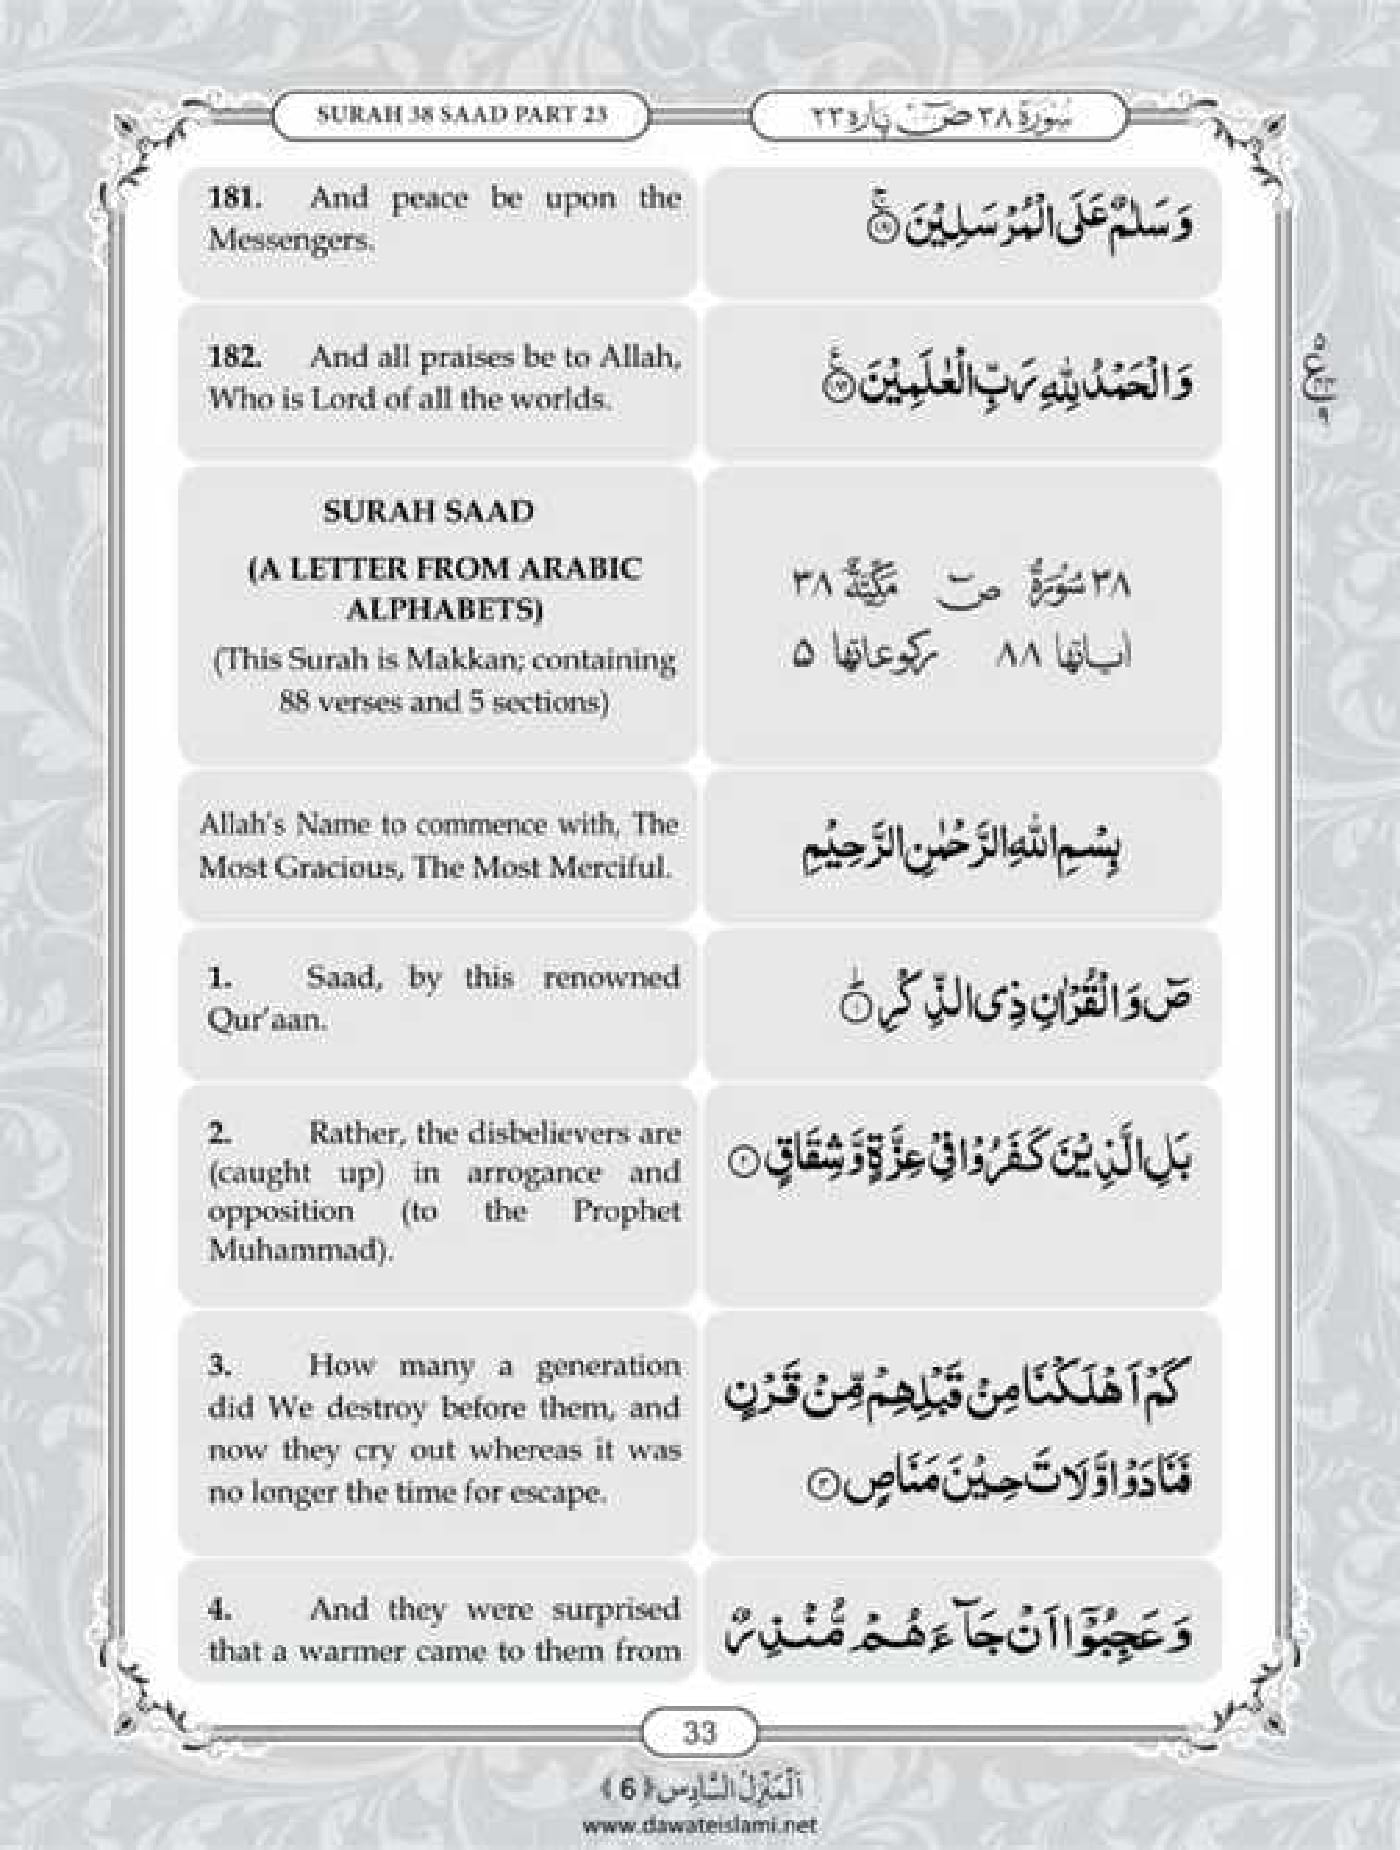 SURAH 38 SAAD PART 23
سُورَة ٣٨ صٓ پاره ٢٣
181. And peace be upon the
Messengers.
وَسَلٰمٌ عَلَى الْمُرْسَلِيْنَ ۚ﴿١٨١﴾
182. And all praises be to Allah,
Who is Lord of all the worlds.
وَالْحَمْدُ لِلّٰهِ رَبِّ الْعٰلَمِيْنَ ﴿١٨٢﴾
٥
ع
٤٣
٩
SURAH SAAD
(A LETTER FROM ARABIC
ALPHABETS)
(This Surah is Makkan; containing
88 verses and 5 sections)
٣٨ سُوْرَةُ صٓ مَكِّيَّةٌ ٣٨
اٰياتها ٨٨ ركوعاتها ٥
Allah's Name to commence with, The
Most Gracious, The Most Merciful.
بِسْمِ اللّٰهِ الرَّحْمٰنِ الرَّحِيْمِ
1. Saad, by this renowned
Qur'aan.
صٓ وَالْقُرْاٰنِ ذِى الذِّكْرِ ؕ﴿١﴾
2. Rather, the disbelievers are
(caught up) in arrogance and
opposition (to the Prophet
Muhammad).
بَلِ الَّذِيْنَ كَفَرُوْا فِيْ عِزَّةٍ وَّشِقَاقٍ ﴿٢﴾
3. How many a generation
did We destroy before them, and
now they cry out whereas it was
no longer the time for escape.
كَمْ اَهْلَكْنَا مِنْ قَبْلِهِمْ مِّنْ قَرْنٍ
فَنَادَوْا وَّلَاتَ حِيْنَ مَنَاصٍ ﴿٣﴾
4. And they were surprised
that a warmer came to them from
وَعَجِبُوْٓا اَنْ جَآءَهُمْ مُّنْذِرٌ
33
اَلْمَنْزِلُ السَّادِس ﴿6﴾
www.dawateislami.net